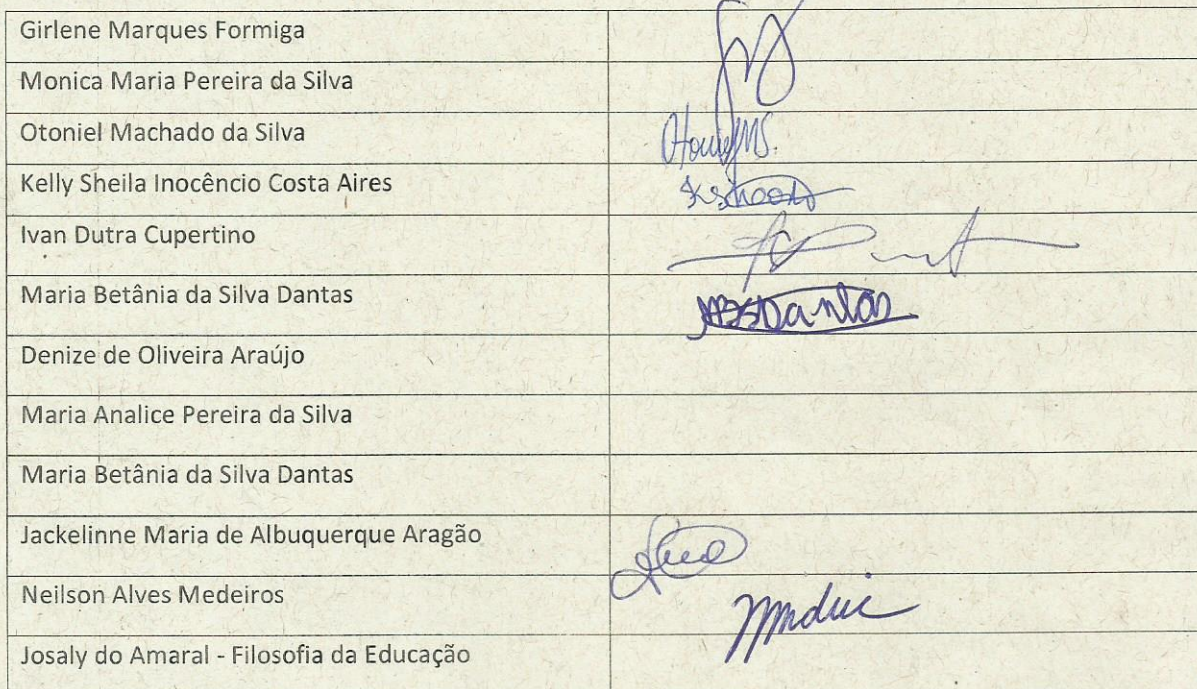 Girlene Marques Formiga
Monica Maria Pereira da Silva
Otoniel Machado da Silva
OtonielMS.
Kelly Sheila Inocêncio Costa Aires
Ivan Dutra Cupertino
Maria Betânia da Silva Dantas
MBSDantas
Denize de Oliveira Araújo
Maria Analice Pereira da Silva
Maria Betânia da Silva Dantas
Jackelinne Maria de Albuquerque Aragão
Neilson Alves Medeiros
Josaly do Amaral - Filosofia da Educação